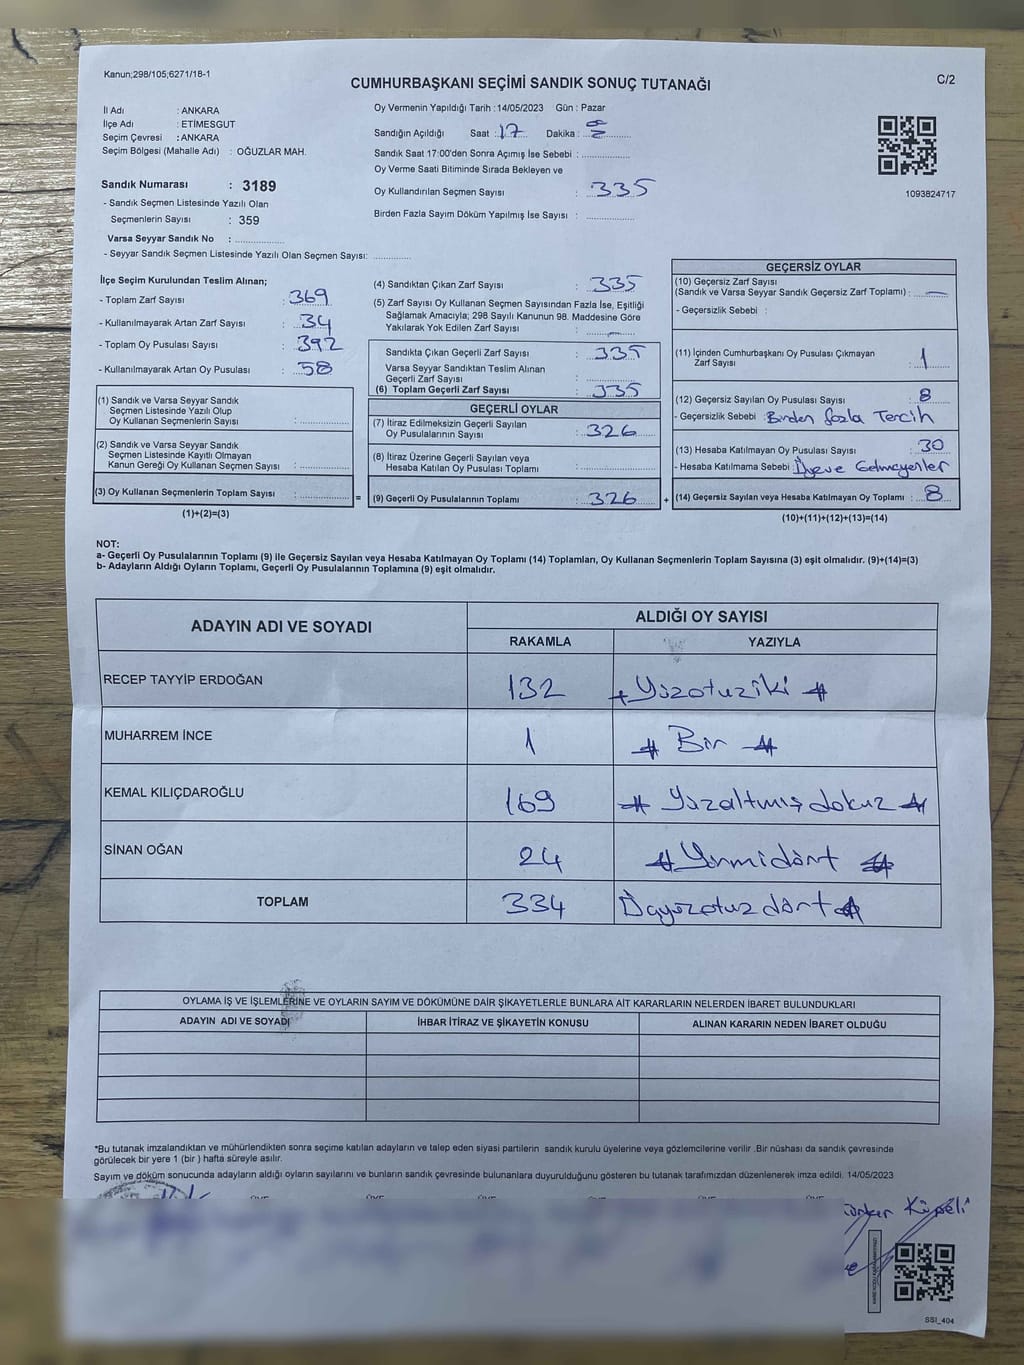 Kanun;298/105;6271/18-1
C/2
CUMHURBAŞKANI SEÇİMİ SANDIK SONUÇ TUTANAĞI
İl Adı : ANKARA
İlçe Adı : ETİMESGUT
Seçim Çevresi : ANKARA
Seçim Bölgesi (Mahalle Adı) : OĞUZLAR MAH.
Sandık Numarası : 3189
- Sandık Seçmen Listesinde Yazılı Olan
Seçmenlerin Sayısı : 359
Varsa Seyyar Sandık No : ..............
- Seyyar Sandık Seçmen Listesinde Yazılı Olan Seçmen Sayısı: ............
Oy Vermenin Yapıldığı Tarih :14/05/2023 Gün : Pazar
Sandığın Açıldığı Saat : 17 Dakika :
Sandık Saat 17:00'den Sonra Açımış İse Sebebi : ..............
Oy Verme Saati Bitiminde Sırada Bekleyen ve
Oy Kullandırılan Seçmen Sayısı : 335
Birden Fazla Sayım Döküm Yapılmış İse Sayısı : ..............
1093824717
İlçe Seçim Kurulundan Teslim Alınan;
- Toplam Zarf Sayısı : 369
- Kullanılmayarak Artan Zarf Sayısı : 34
- Toplam Oy Pusulası Sayısı : 392
- Kullanılmayarak Artan Oy Pusulası : 58
(1) Sandık ve Varsa Seyyar Sandık
Seçmen Listesinde Yazılı Olup
Oy Kullanan Seçmenlerin Sayısı : ..............
(2) Sandık ve Varsa Seyyar Sandık
Seçmen Listesinde Kayıtlı Olmayan
Kanun Gereği Oy Kullanan Seçmen Sayısı : ..............
(3) Oy Kullanan Seçmenlerin Toplam Sayısı : ..............
(1)+(2)=(3)
=
(4) Sandıktan Çıkan Zarf Sayısı : 335
(5) Zarf Sayısı Oy Kullanan Seçmen Sayısından Fazla İse, Eşitliği
Sağlamak Amacıyla; 298 Sayılı Kanunun 98. Maddesine Göre
Yakılarak Yok Edilen Zarf Sayısı : -
Sandıkta Çıkan Geçerli Zarf Sayısı : 335
Varsa Seyyar Sandıktan Teslim Alınan
Geçerli Zarf Sayısı : ..............
(6) Toplam Geçerli Zarf Sayısı : 335
GEÇERLİ OYLAR
(7) İtiraz Edilmeksizin Geçerli Sayılan
Oy Pusulalarının Sayısı : 326
(8) İtiraz Üzerine Geçerli Sayılan veya
Hesaba Katılan Oy Pusulası Toplamı : ..............
(9) Geçerli Oy Pusulalarının Toplamı : 326
+
GEÇERSİZ OYLAR
(10) Geçersiz Zarf Sayısı
(Sandık ve Varsa Seyyar Sandık Geçersiz Zarf Toplamı) : -
- Geçersizlik Sebebi :
(11) İçinden Cumhurbaşkanı Oy Pusulası Çıkmayan
Zarf Sayısı : 1
(12) Geçersiz Sayılan Oy Pusulası Sayısı : 8
- Geçersizlik Sebebi : Birden fazla Tercih
(13) Hesaba Katılmayan Oy Sayısı : 30
- Hesaba Katılmama Sebebi : Oyeve Gelmeyenler
(14) Geçersiz Sayılan veya Hesaba Katılmayan Oy Toplamı : 8
(10)+(11)+(12)+(13)=(14)
NOT:
a- Geçerli Oy Pusulalarının Toplamı (9) ile Geçersiz Sayılan veya Hesaba Katılmayan Oy Toplamı (14) Toplamları, Oy Kullanan Seçmenlerin Toplam Sayısına (3) eşit olmalıdır. (9)+(14)=(3)
b- Adayların Aldığı Oyların Toplamı, Geçerli Oy Pusulalarının Toplamına (9) eşit olmalıdır.
ADAYIN ADI VE SOYADI
ALDIĞI OY SAYISI
RAKAMLA YAZIYLA
RECEP TAYYİP ERDOĞAN 132 # Yüzotuziki #
MUHARREM İNCE 1 # Bir #
KEMAL KILIÇDAROĞLU 169 # Yüzaltmış dokuz #
SİNAN OĞAN 24 # Yirmidört #
TOPLAM 334 Üçyüzotuz dört #
OYLAMA İŞ VE İŞLEMLERİNE VE OYLARIN SAYIM VE DÖKÜMÜNE DAİR ŞİKAYETLERLE BUNLARA AİT KARARLARIN NELERDEN İBARET BULUNDUKLARI
ADAYIN ADI VE SOYADI İHBAR İTİRAZ VE ŞİKAYETİN KONUSU ALINAN KARARIN NEDEN İBARET OLDUĞU
*Bu tutanak imzalandıktan ve mühürlendikten sonra seçime katılan adayların ve talep eden siyasi partilerin sandık kurulu üyelerine veya gözlemcilerine verilir. Bir nüshası da sandık çevresinde
görülecek bir yere 1 (bir ) hafta süreyle asılır.
Sayım ve döküm sonucunda adayların aldığı oyların sayılarını ve bunların sandık çevresinde bulunanlara duyurulduğunu gösteren bu tutanak tarafımızdan düzenlenerek imza edildi. 14/05/2023
ÜYE ÜYE ÜYE ÜYE ÜYE ÜYE
Küpeli
SSI_404